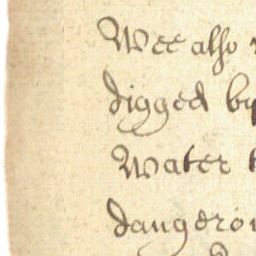 Wee also
digged by
Water
dangerou